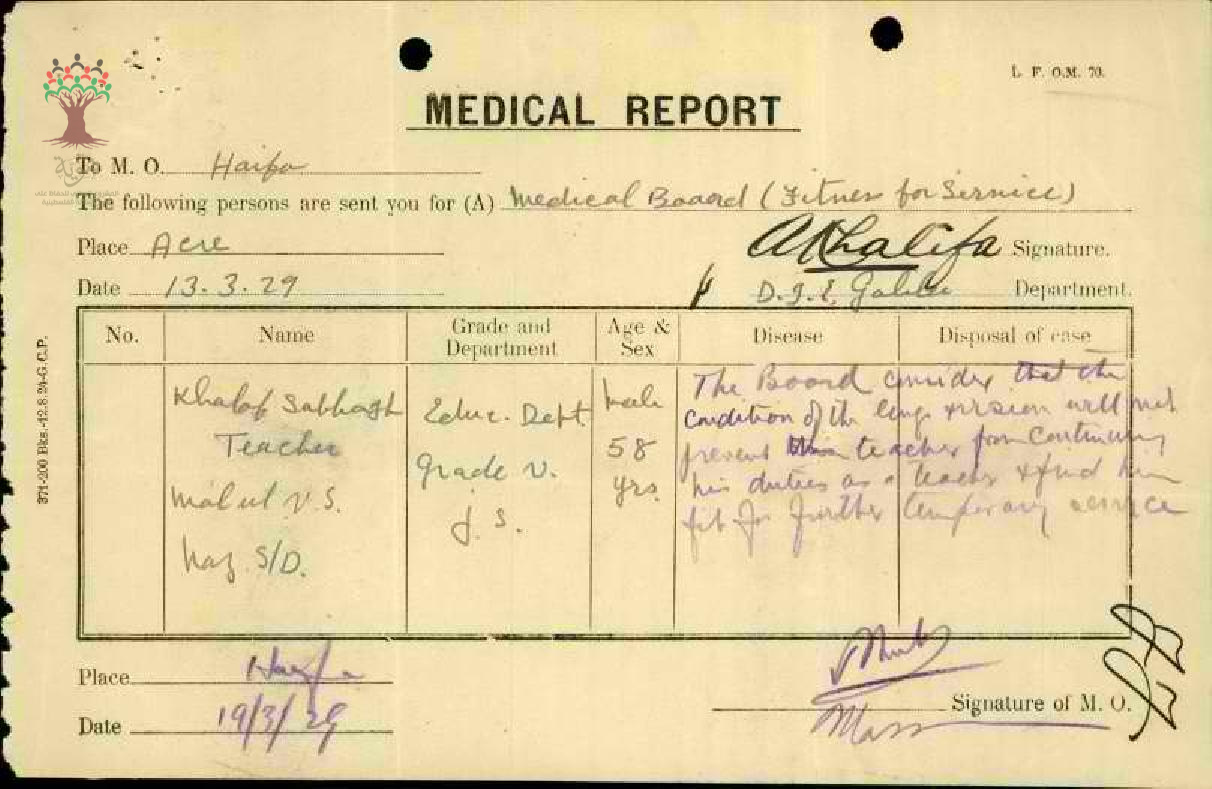 L. F. O.M. 70.
MEDICAL REPORT
To M. O. Haifa
The following persons are sent you for (A) Medical Baoard (Fitness for Service)
Place Acre
AKhalifa Signature.
Date 13.3.29
D.I.E. Galilee Department.
No. Name Grade and Department Age & Sex Disease Disposal of case
Khalaf Sabbagh
Teacher
Malul V.S.
Naz. S/D.
Educ. Dept
Grade V.
J. S.
Male
58
yrs.
The Board consider that the
condition of the lungs & vision will not
prevent this teacher from continuing
his duties as a teacher & find him
fit for further temporary service
371-200 Bks.-12.8.24-G.C.P.
Place Haifa
Date 19/3/29
Signature of M. O.